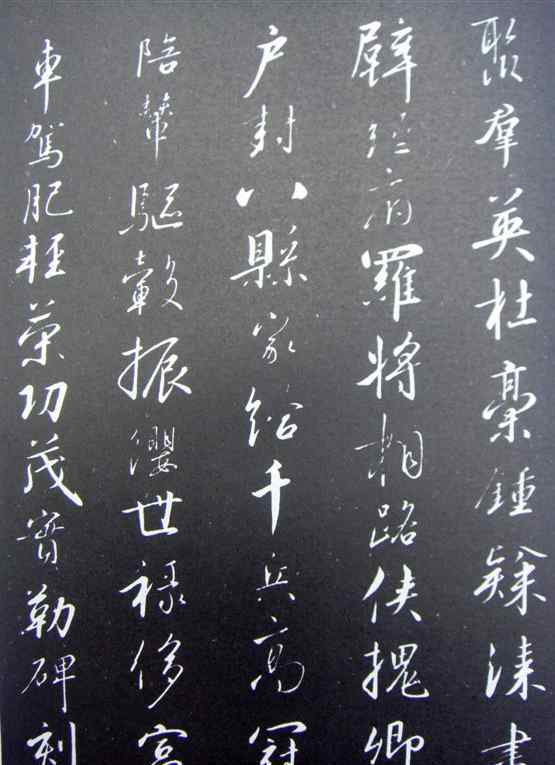 聚羣英杜稾鍾隸漆書
壁經府羅將相路俠槐卿
戶封八縣家給千兵高冠
陪輦驅轂振纓世祿侈富
車駕肥輕策功茂實勒碑刻